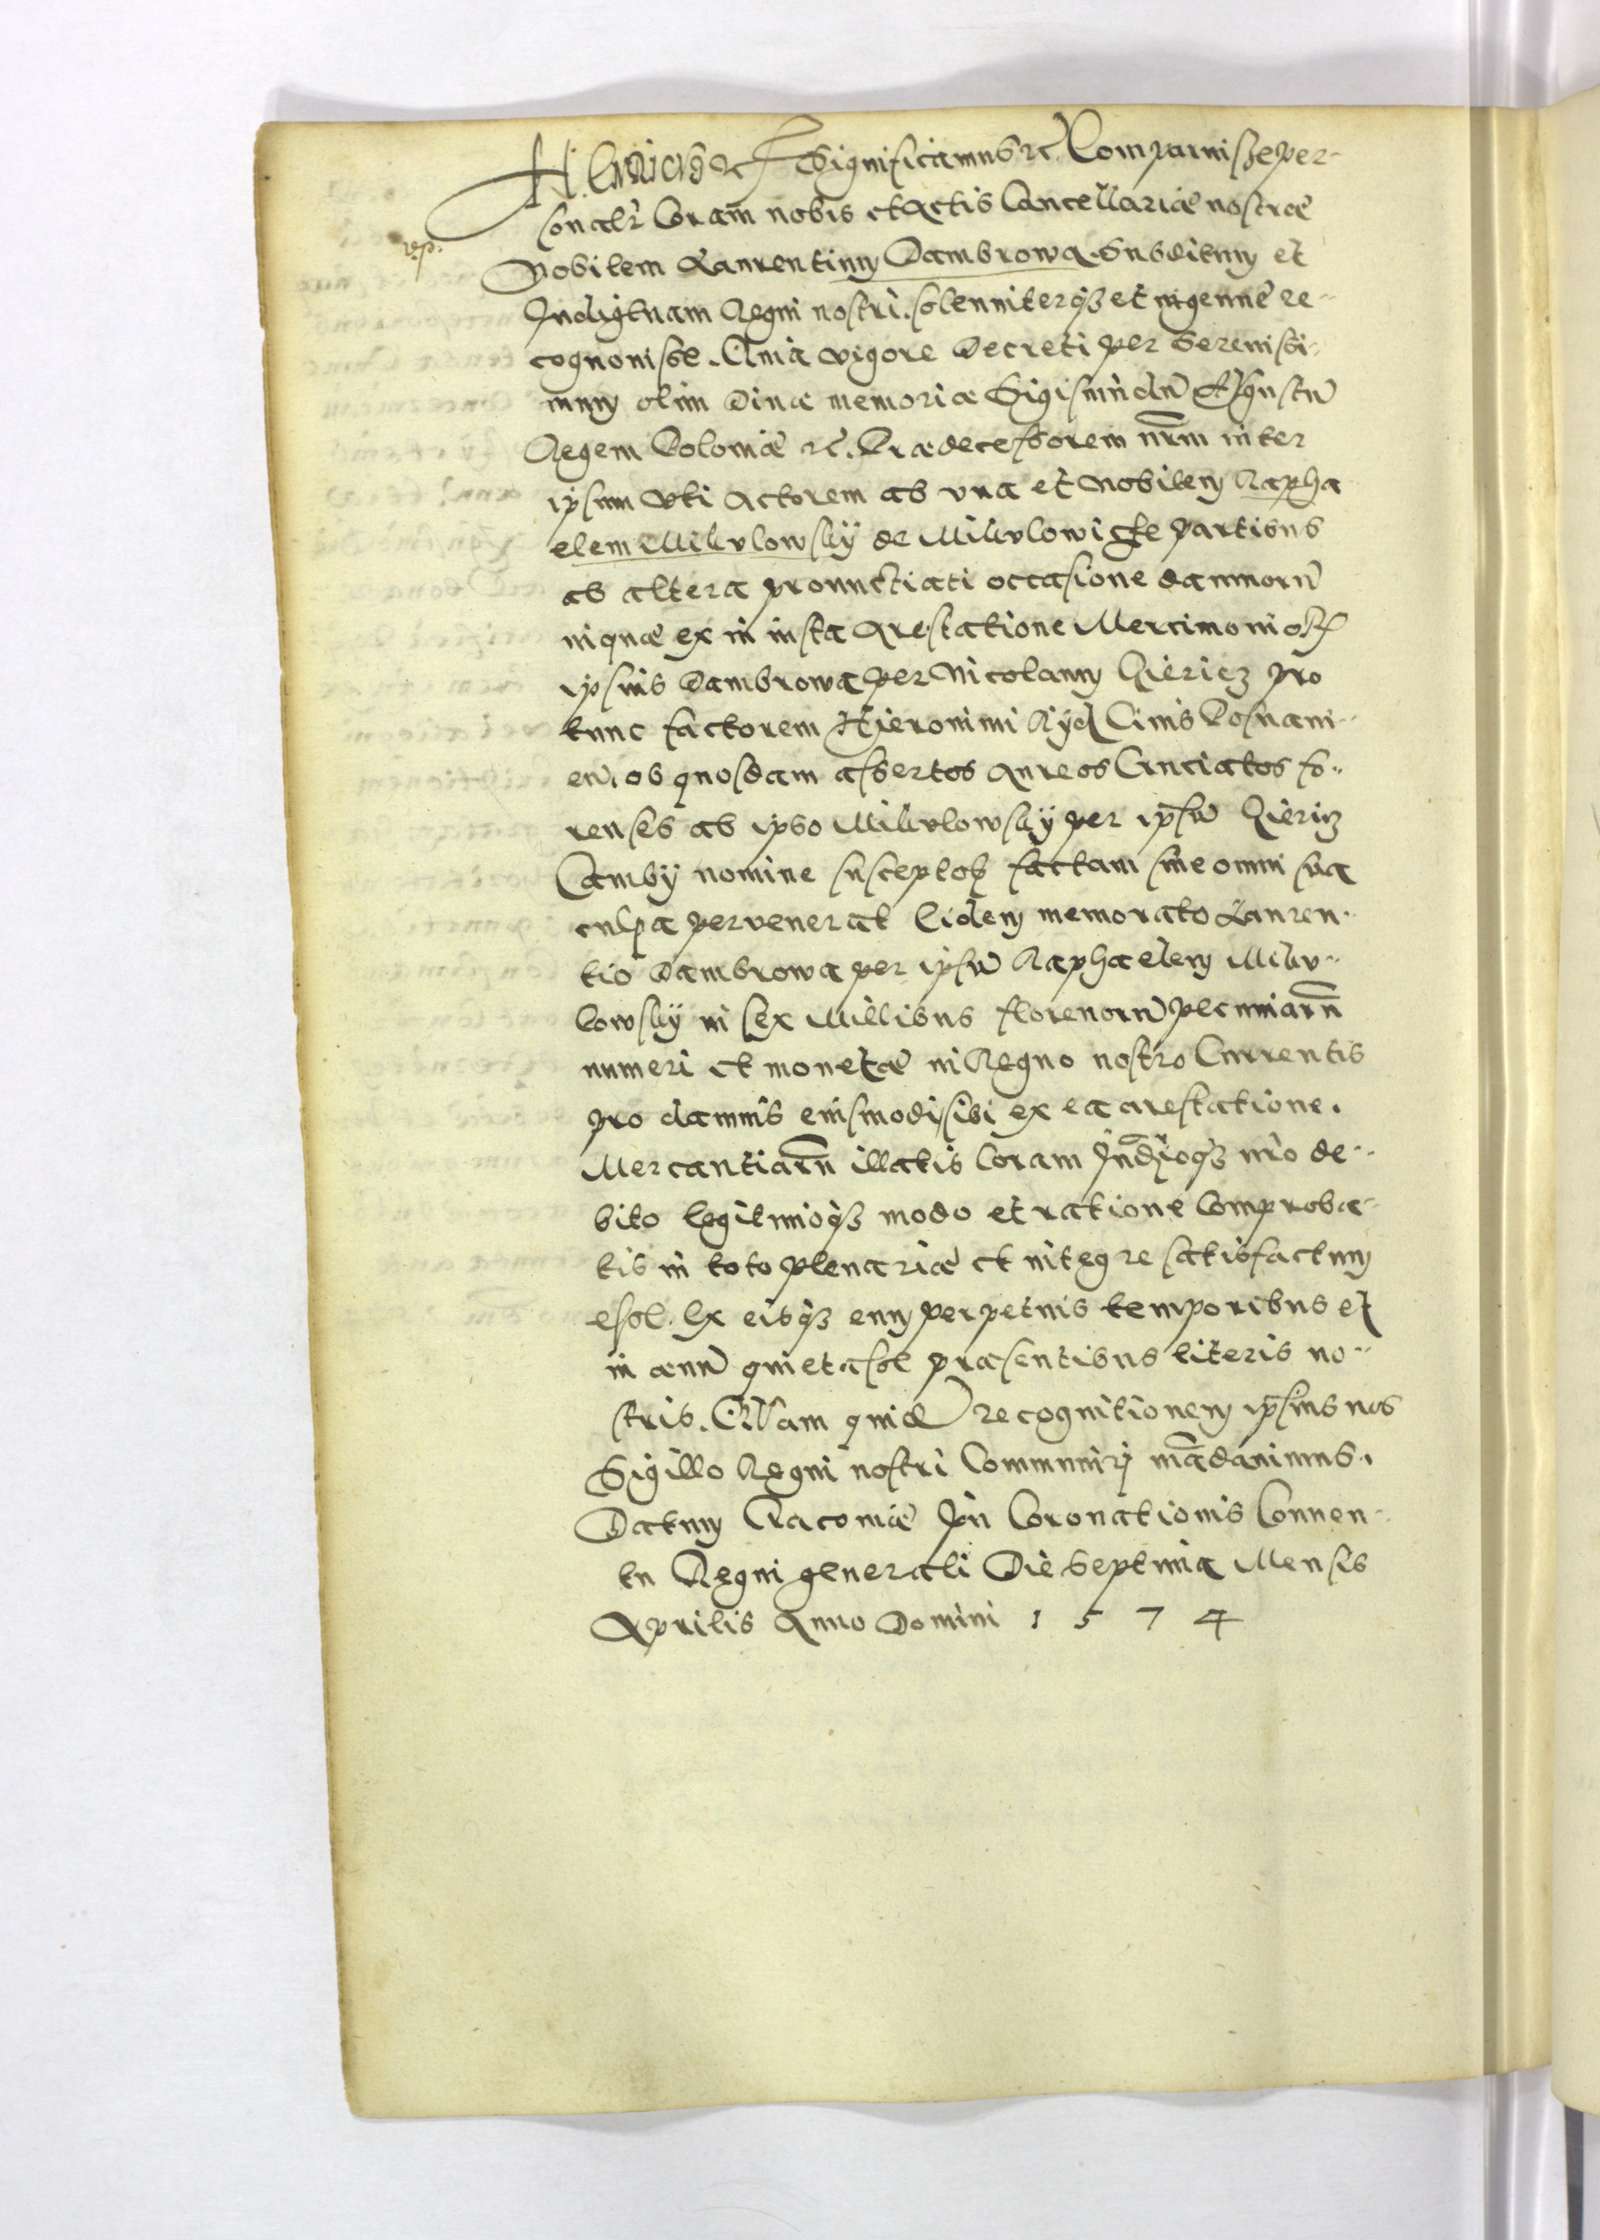 Henricus etc Significamus etc. Comparuisse per-
sonalr̃ Coram nobis et Actis Cancellariæ nostræ
rp.
Nobilem Laurentium Dambrowa. Subditum et
Indigenam Regni nostri. solenniterq3 et ingenue re-
cognouisse. Quia vigore Decreti per Serenissi-
mum olim Diuæ memoriæ Sigismũdũ Augustũ
Regem Poloniæ etc. Prædecessorem nr̃m inter
ipsum vti Actorem ab vna et Nobilem Rapha
elem Mikulowsky de Mikulowicze partibus
ab altera pronunctiati occasione damnorũ
in quæ ex in iusta Arestatione Mercimoniorũ
ipsius Dambrowa per Nicolaum Kiericz pro
tunc factorem Hieronimi Ryd Ciuis Posnani-
eñ. ob quosdam assertos Aureos Cruciatos fo-
renses ab ipso Mikulowsky per ipsũ Kiericz
Camby nomine susceptos factam sine omni sua
culpa pervenerat Eidem memorato Lauren-
tio Dambrowa per ipsũ Raphaelem Miku-
lowsky in sex Millibus florenorũ pecuniarũ
numeri et monetæ in Regno nostro Currentis
pro damnis eiusmodi sibi ex ea arestatione.
Mercantiarũ illatis Coram Iudicioq3 nr̃o de-
bito legitimoq3 modo et ratione Comproba-
tis in toto plenariæ et integre satisfactum
esse. Ex eisq3 eum perpetuis temporibus et
in æuũ quietasse præsentibus literis no-
stris. Quam quidẽ recognitionem ipsius nos
Sigillo Regni nostri Communiri mãdauimus.
Datum Cracouiæ In Coronationis Conuen-
tu Regni generali Die Septima Mensis
Aprilis Anno Domini 1 5 7 4